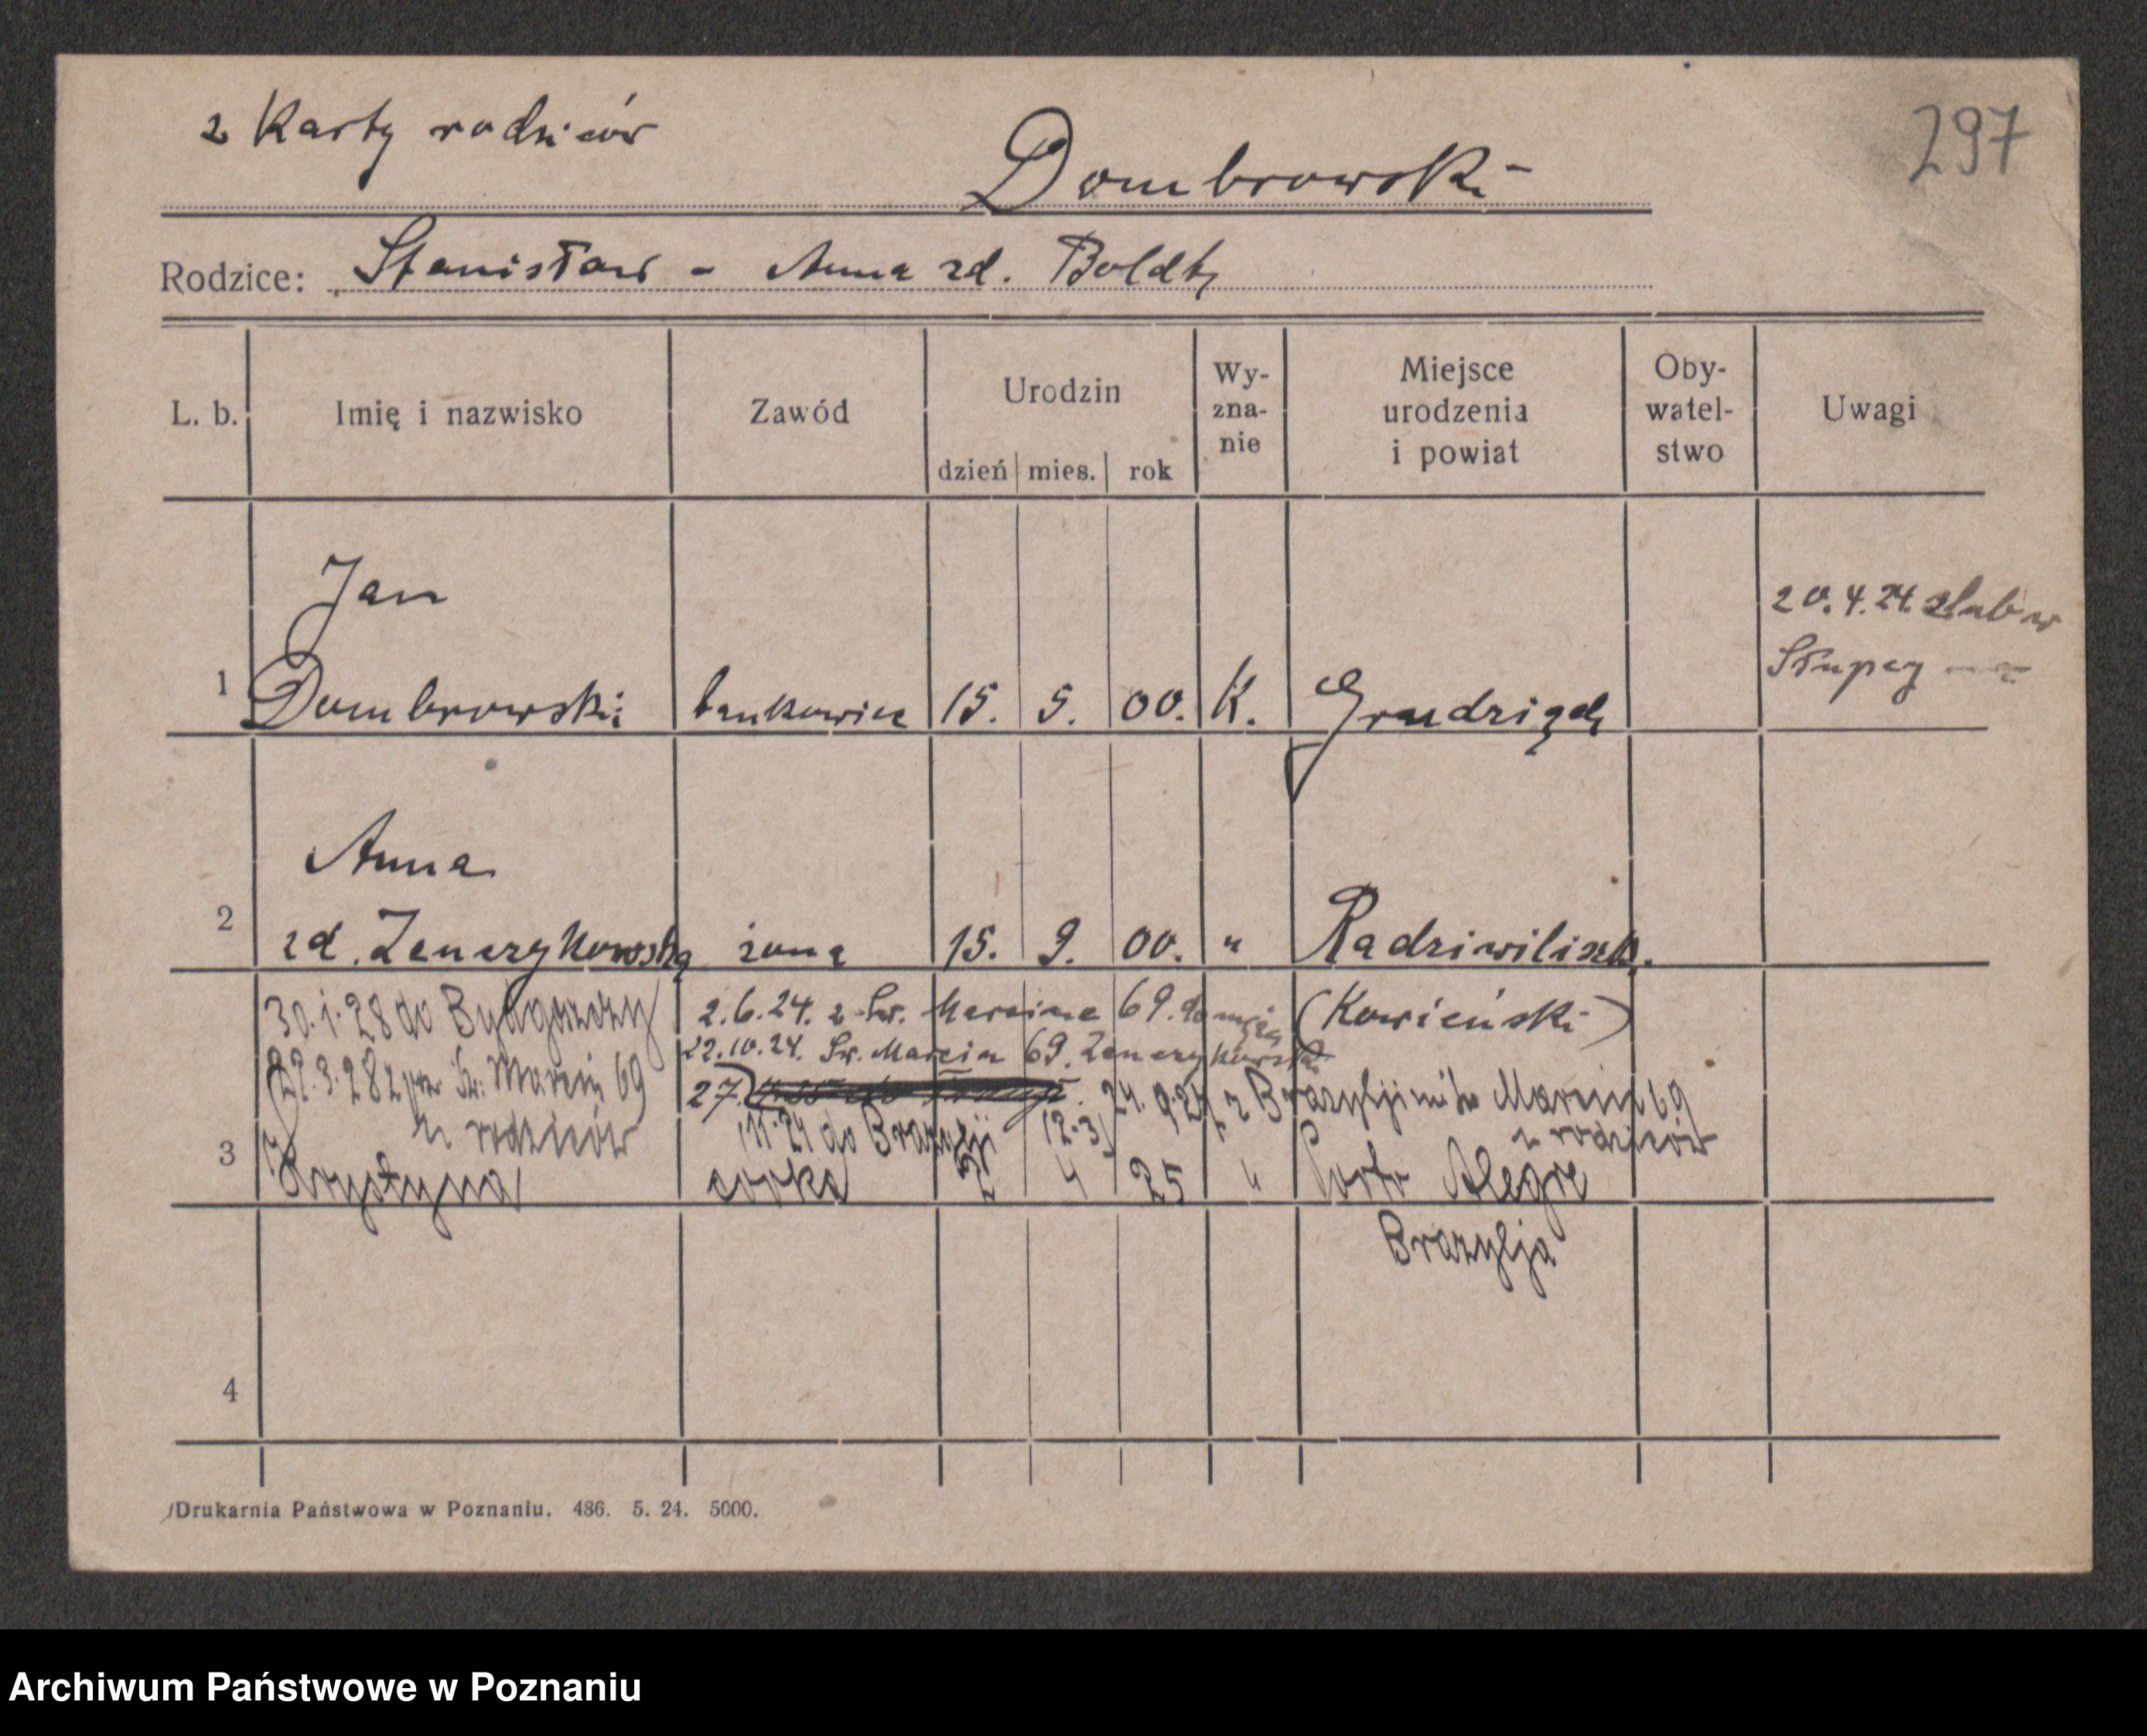 z Karty rodziców
297
Dombrowski
Rodzice: Stanisław - Anna zd. Boldt
L. b. Imię i nazwisko Zawód Urodzin dzień mies. rok Wy-zna-nie Miejsce urodzenia i powiat Oby-watel-stwo Uwagi
20.4.24. ślub w
Słupcy
Jan
1 Dombrowski bankowiec 15. 5. 00. K. Grudziądz
Anna
2 zd. Zenczykowska żona 15. 9. 00. " Radziwiliszk.
(Kowieński)
30.1.28 do Bydgoszczy
2.6.24. z Św. Marcina 69. do męża
22.10.24. Św. Marcin 69. Zenczykowski
22.3.28 Św. Marcin 69
u rodziców
27.
11.24 do Brazylji
24.9.27 z Brazylji Marcin 69
u rodziców
3 Krystyna córka 2 4 25 " Porto Alegre
Brazylja
4
Drukarnia Państwowa w Poznaniu. 486. 5. 24. 5000.
Archiwum Państwowe w Poznaniu